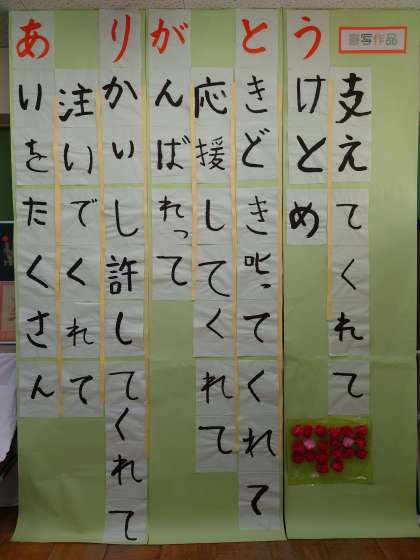 書写作品
あいをたくさん
注いでくれて
りかいし許してくれて
がんばれって
応援してくれて
ときどき叱ってくれて
うけとめ
支えてくれて